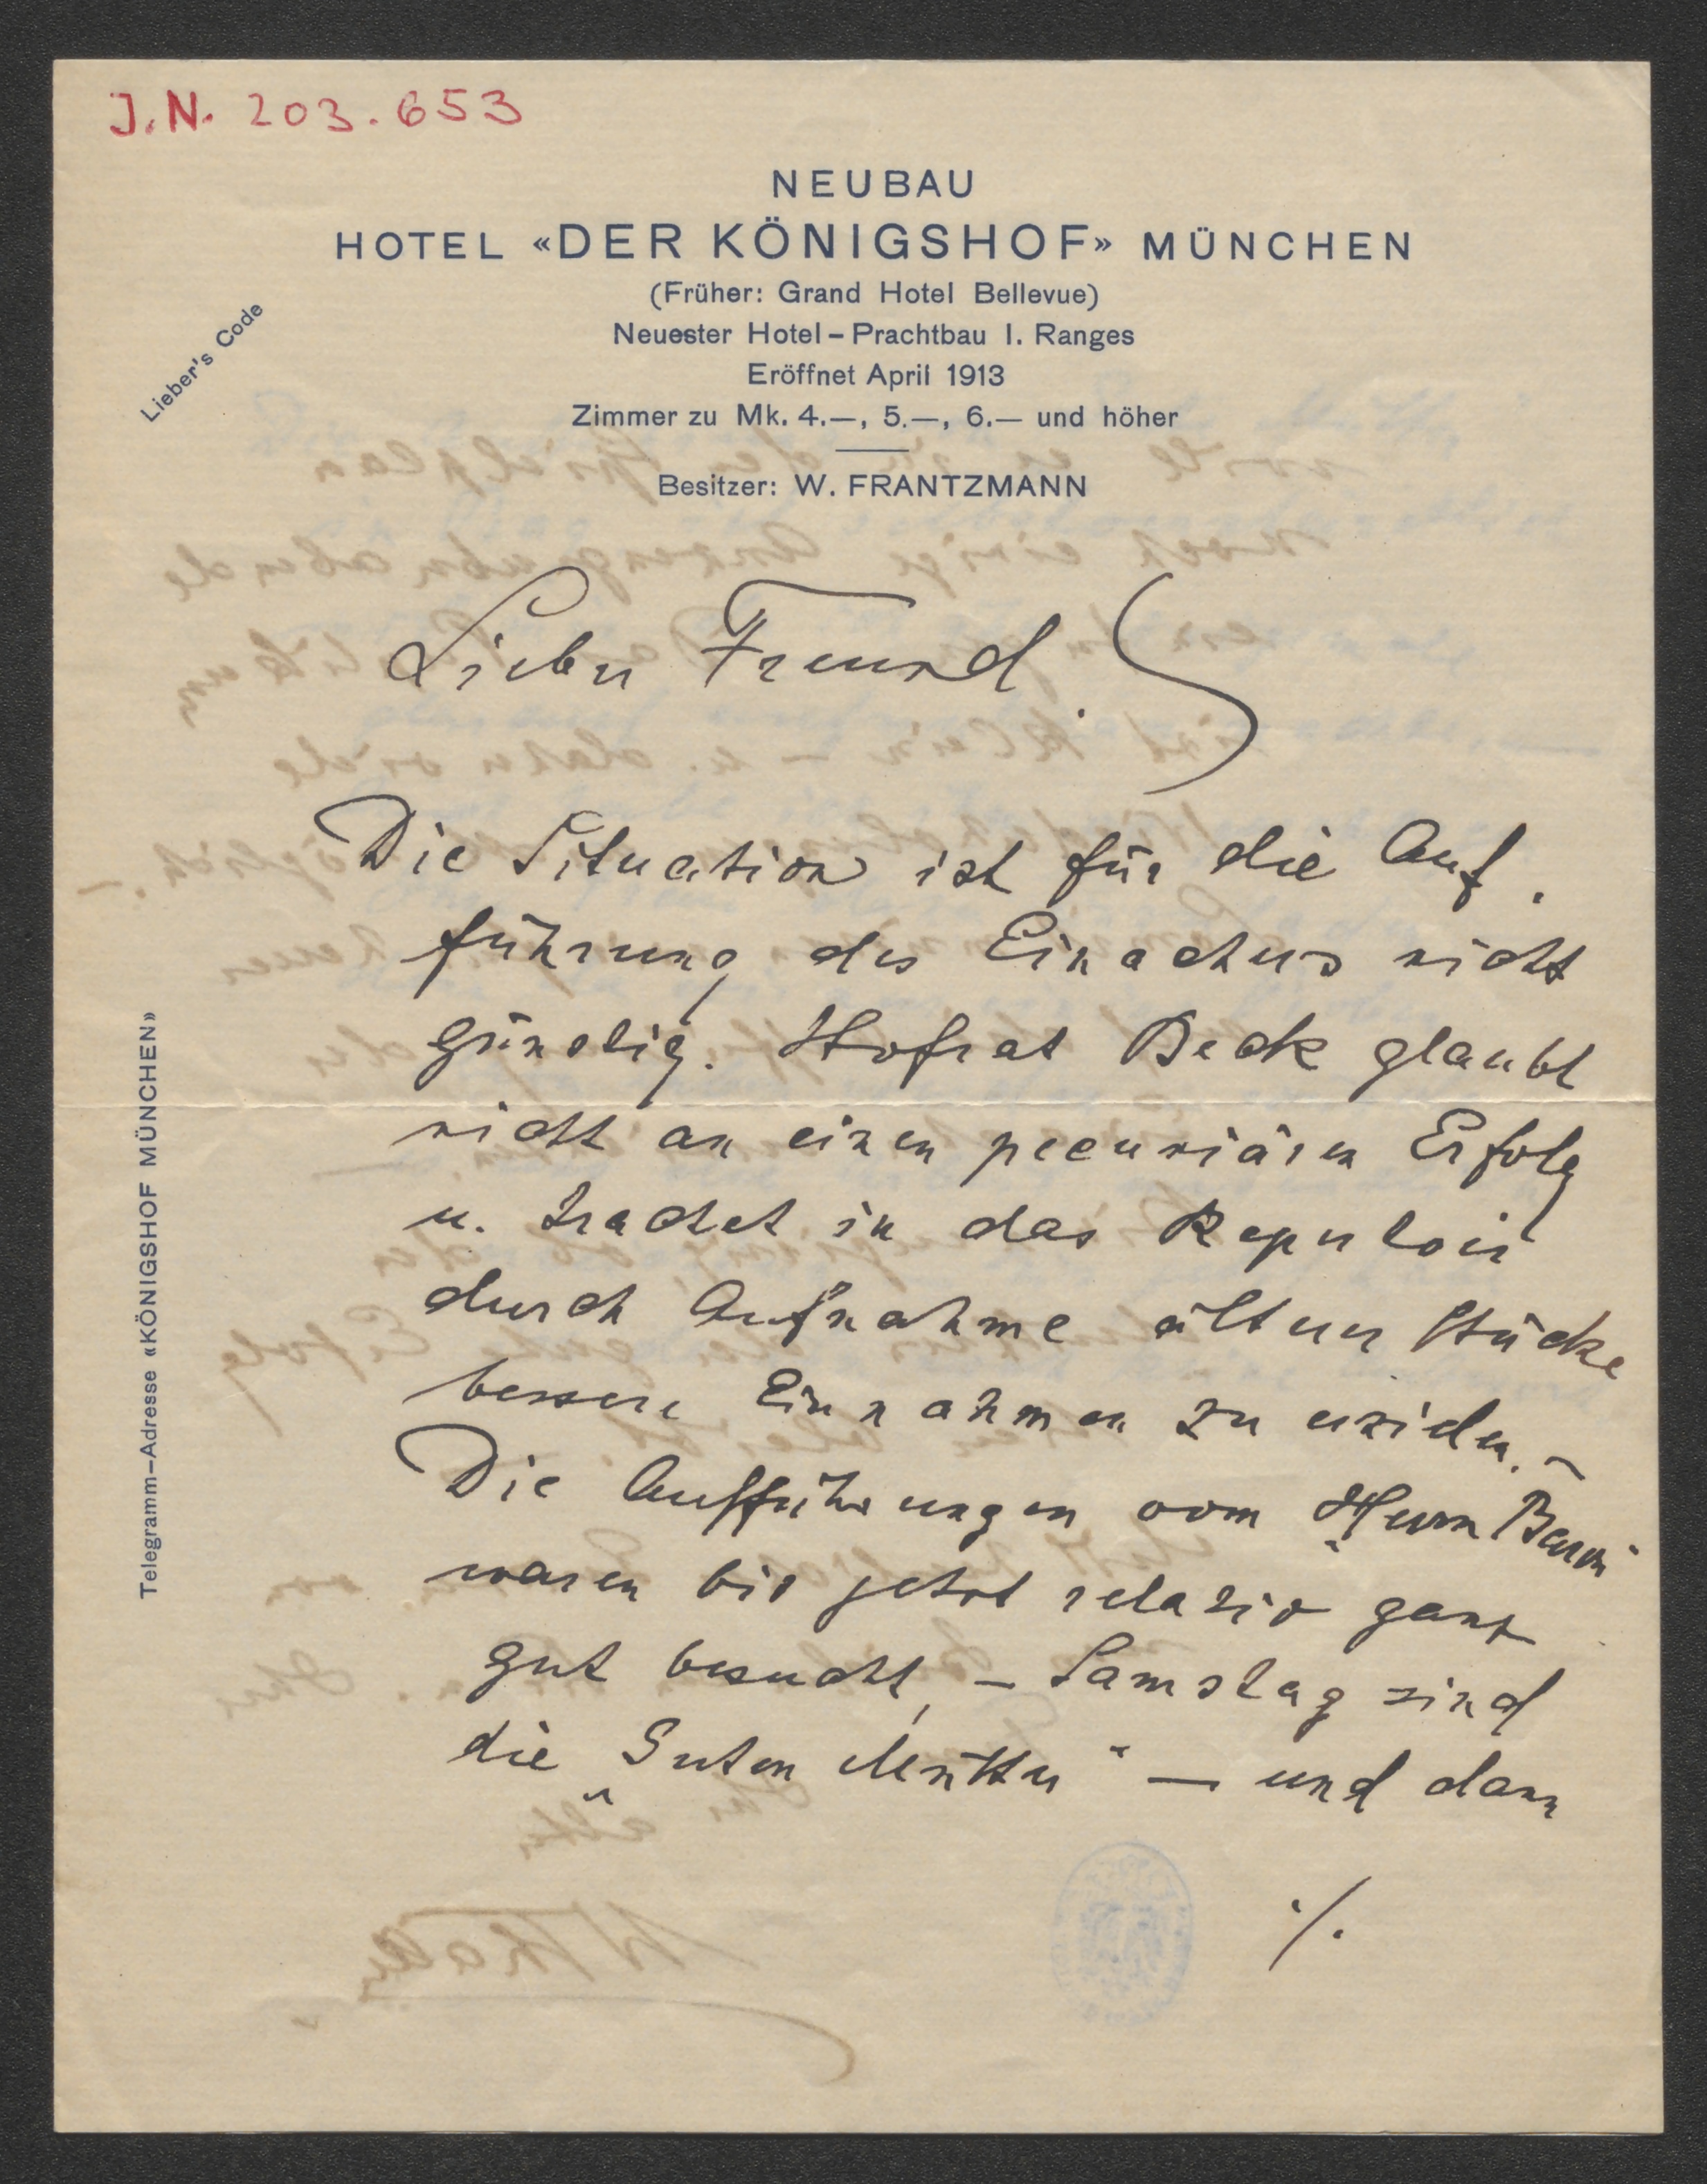 J.N. 203.653
NEUBAU
HOTEL «DER KÖNIGSHOF» MÜNCHEN
(Früher: Grand Hotel Bellevue)
Neuester Hotel-Prachtbau I. Ranges
Eröffnet April 1913
Zimmer zu Mk. 4.—, 5.—, 6.— und höher
Besitzer: W. FRANTZMANN
Lieber's Code
Telegramm-Adresse «KÖNIGSHOF MÜNCHEN»
Lieber Freund.
Die Situation ist für die Auf-
führung des Einacters nicht
günstig. Hofrat Beck glaubt
nicht an einen pecuniären Erfolg
u. trachtet in das Repertoir
durch Aufnahme älterer Stücke
bessere Einnahmen zu erzielen. –
Die Aufführungen vom „Herrn
waren bis jetzt relativ ganz
gut besucht, – Samstag sind
die „Guten Mütter" – und dann
./.